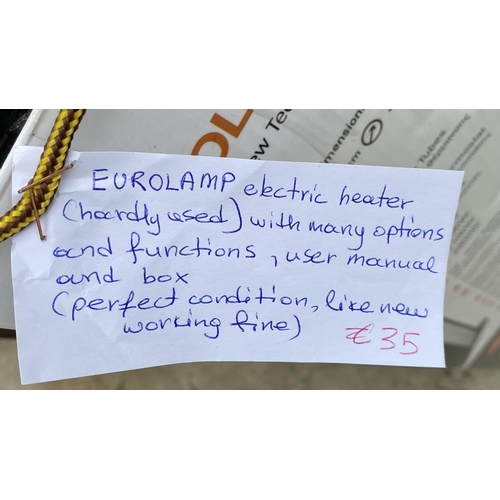 EUROLAMP electric heater
(hardly used) with many options
and functions, user manual
and box
(perfect condition, like new
working fine)
€35
OL
ew Te
imension
Tubes